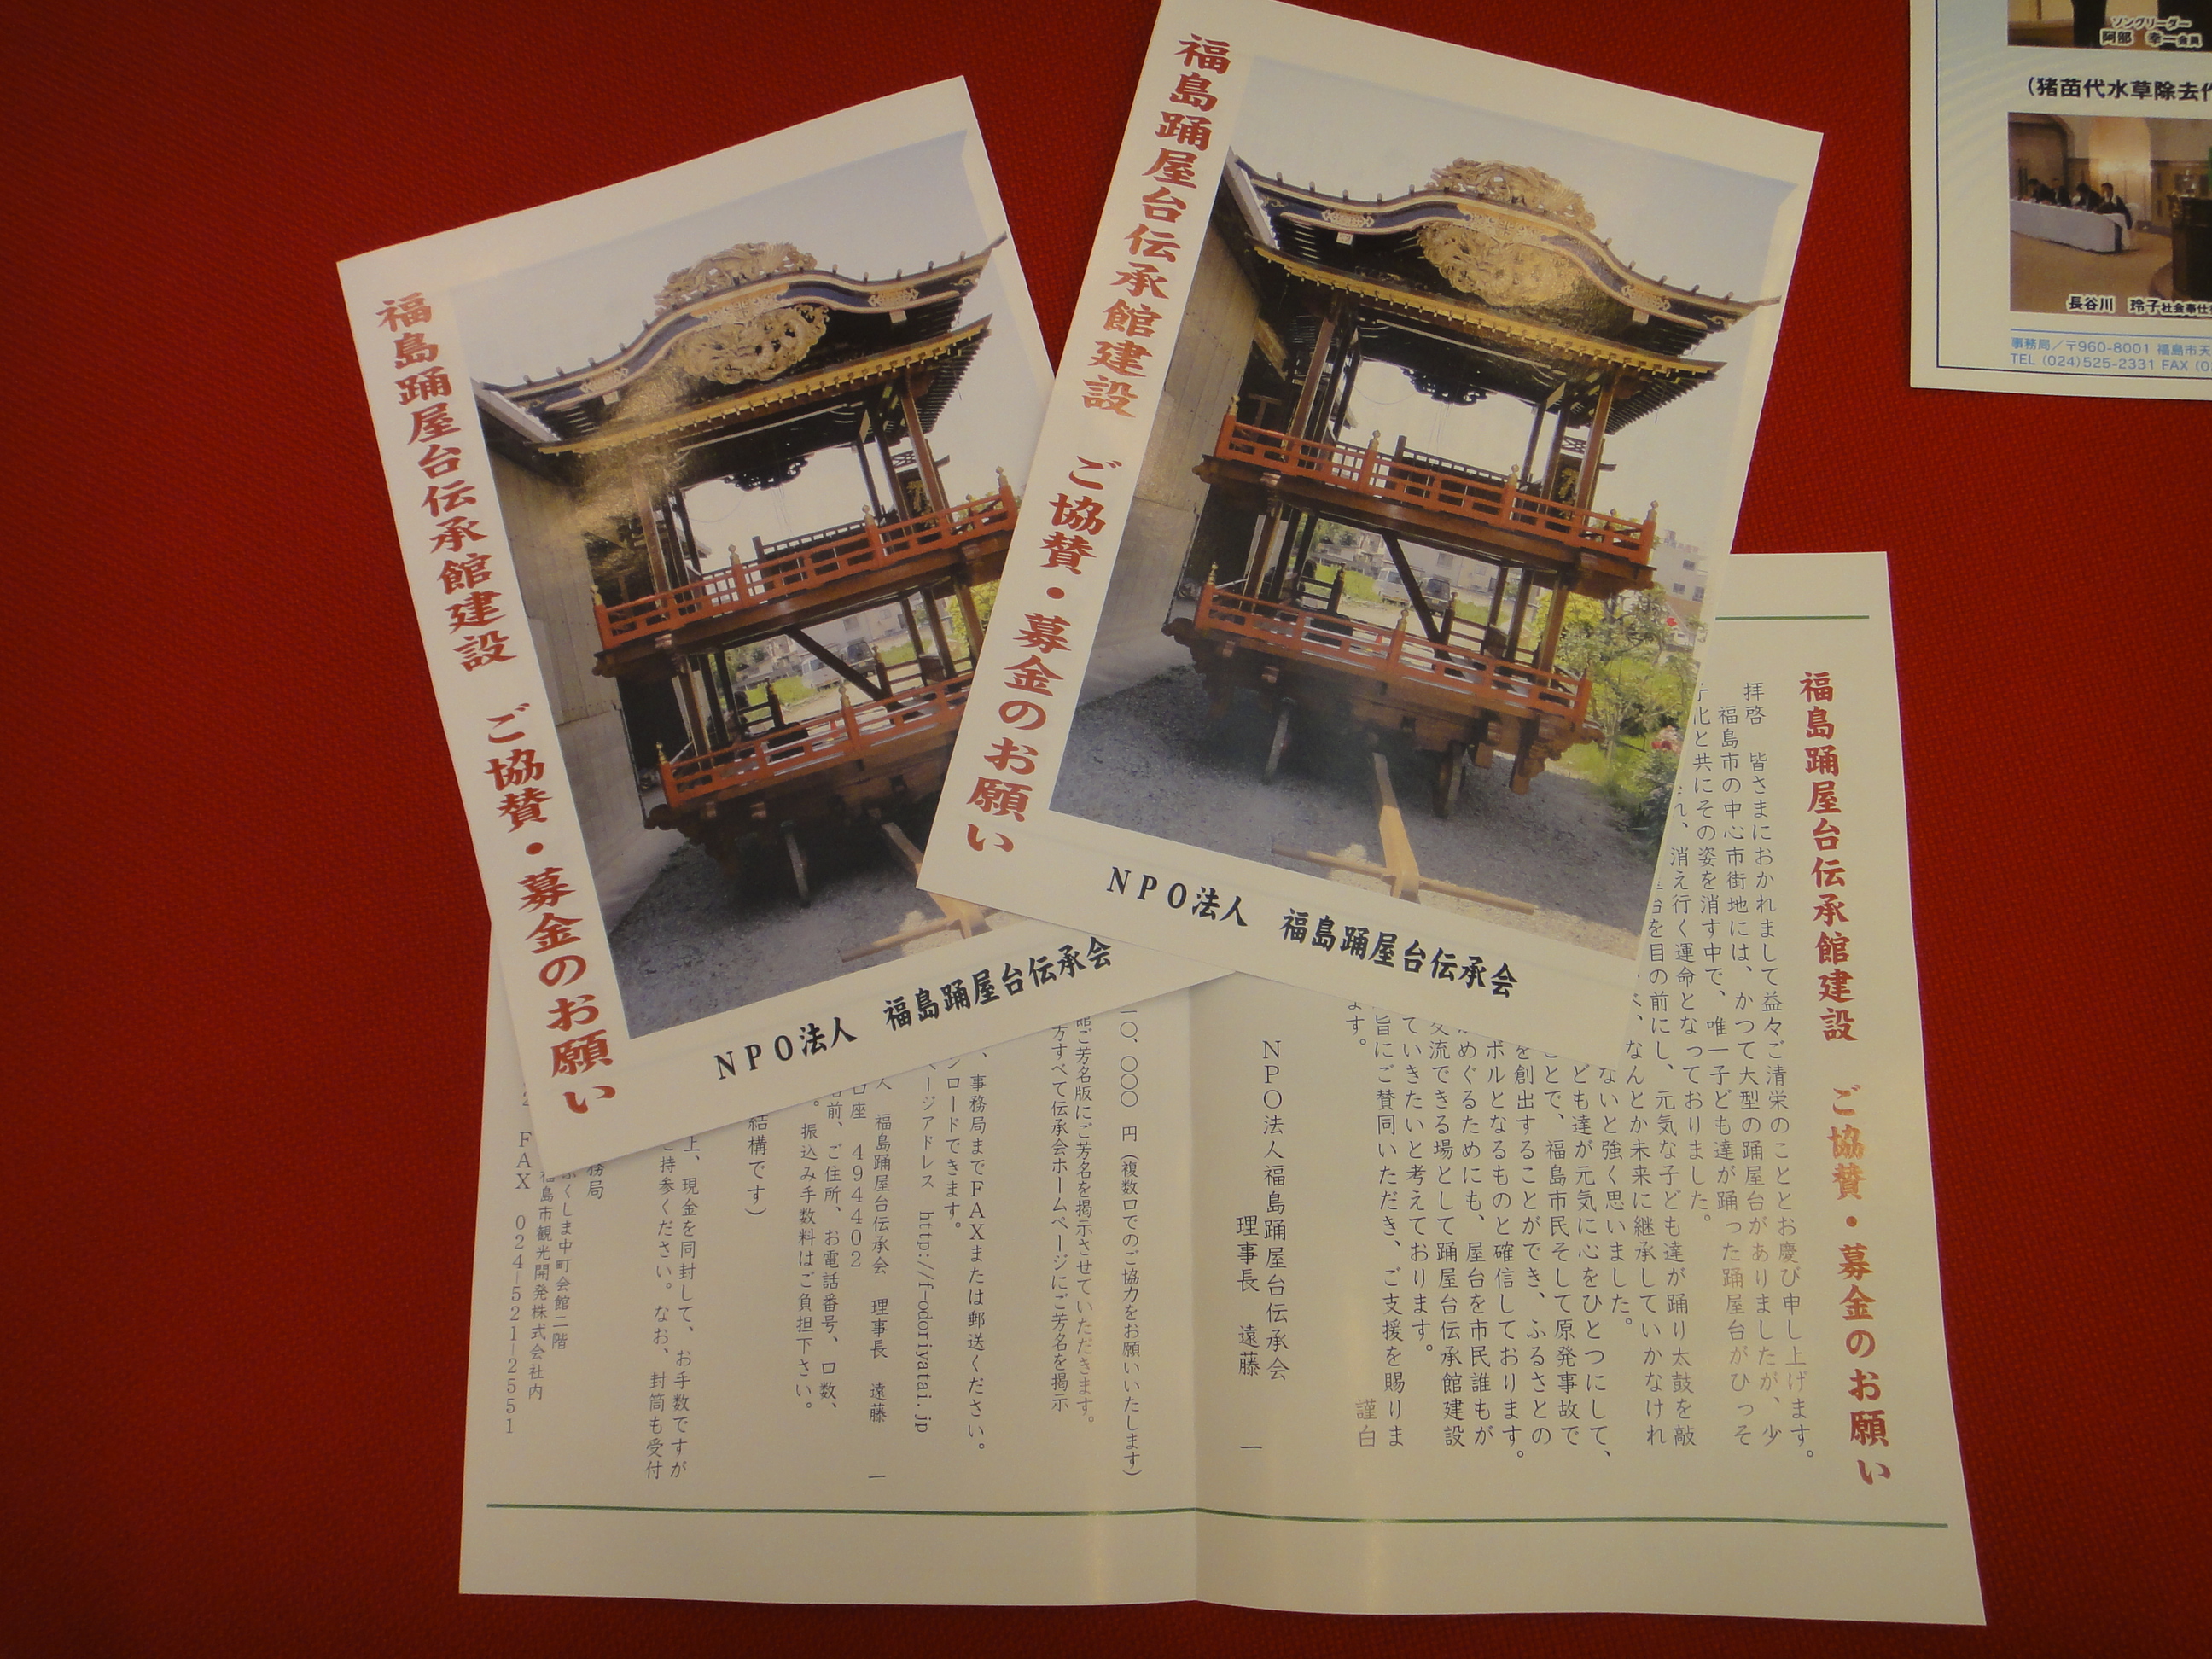 福島踊屋台伝承館建設　ご協賛・募金のお願い
NPO法人　福島踊屋台伝承会
福島踊屋台伝承館建設　ご協賛・募金のお願い
NPO法人　福島踊屋台伝承会
ソングリーダー
阿部　幸一会員
（猪苗代水草除去作
長谷川　玲子社会奉仕
事務局／〒960-8001 福島市天
TEL (024)525-2331 FAX (0
福島踊屋台伝承館建設　ご協賛・募金のお願い
拝啓　皆さまにおかれまして益々ご清栄のこととお慶び申し上げます。
福島市の中心市街地には、かつて大型の踊屋台がありましたが、少
子化と共にその姿を消す中で、唯一子ども達が踊った踊屋台がひっそ
れ、消え行く運命となっておりました。
台を目の前にし、元気な子ども達が踊り太鼓を敲
、なんとか未来に継承していかなけれ
ないと強く思いました。
ども達が元気に心をひとつにして、
ことで、福島市民そして原発事故で
を創出することができ、ふるさとの
ボルとなるものと確信しております。
めぐるためにも、屋台を市民誰もが
交流できる場として踊屋台伝承館建設
ていきたいと考えております。
旨にご賛同いただき、ご支援を賜りま
ます。
謹白
NPO法人福島踊屋台伝承会
理事長　遠藤　一
〇、〇〇〇 円（複数口でのご協力をお願いいたします）
館ご芳名版にご芳名を掲示させていただきます。
方すべて伝承会ホームページにご芳名を掲示
、事務局までFAXまたは郵送ください。
ンロードできます。
ページアドレス　http://f-odoriyatai.jp
人　福島踊屋台伝承会　理事長　遠藤　一
口座　494402
名前、ご住所、お電話番号、口数、
。振込み手数料はご負担下さい。
結構です）
上、現金を同封して、お手数ですが
ご持参ください。なお、封筒も受付
務局
ふくしま中町会館二階
福島市観光開発株式会社内
2　FAX　024-521-2551